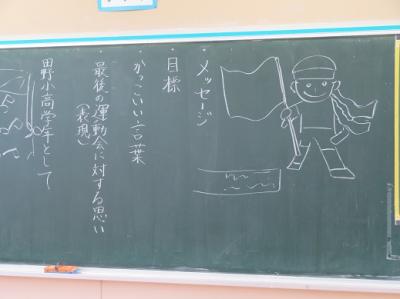 ・メッセージ
・目標
・かっこいい言葉
・最後の運動会に対する思い
（表現）
田野小高学年として